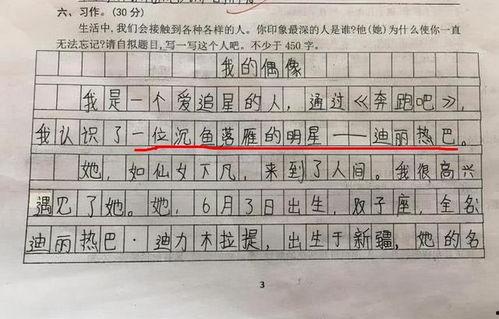 六、习作。(30分)
生活中,我们会接触到各种各样的人。你印象最深的人是谁?他(她)为什么使你一直
无法忘记?请自拟题目,写一写这个人吧。不少于450字。
我的偶像
我是一个爱追星的人,通过《奔跑吧》,
我认识了一位沉鱼落雁的明星——迪丽热巴。
她,如仙女下凡,来到了人间。我很高兴
遇见了她。她,6月3日出生,双子座,全名
迪丽热巴·迪力木拉提,出生于新疆,她的名
3